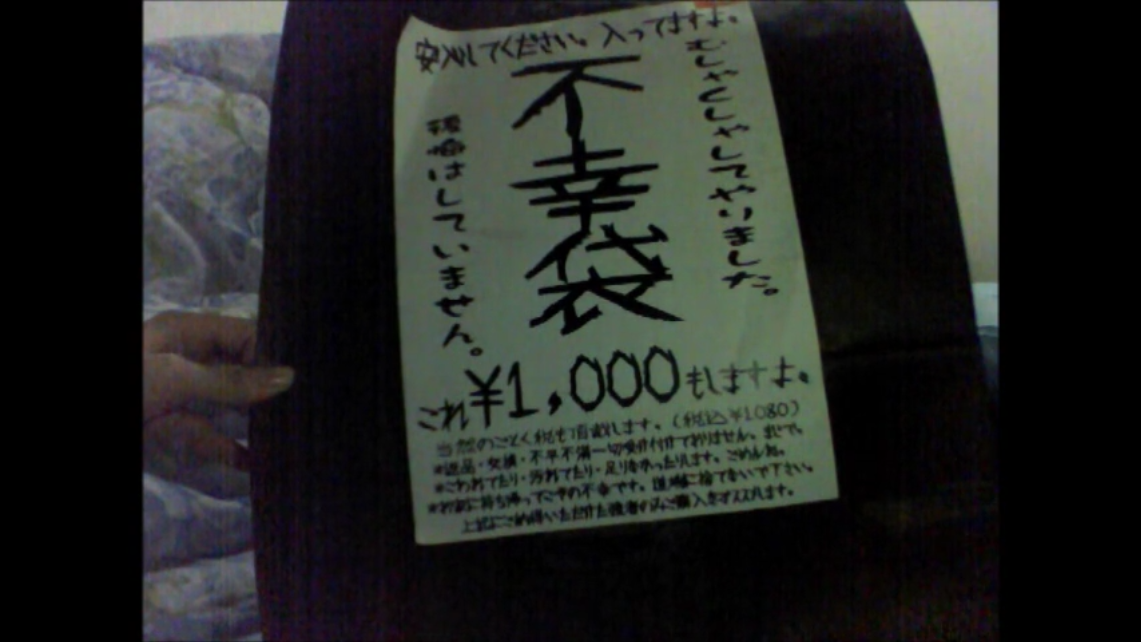 安心してください。入ってますよ。
むしゃくしゃしてやりました。
不幸袋
後悔はしていません。
これ¥1,000もしますよ。
当然のごとく税も頂戴します。(税込¥1080)
※返品・交換・不平不満一切受け付けておりません。まじで。
※こわれてたり・汚れてたり・足りなかったりします。ごめんね。
※お家に持ち帰ってこその不幸です。道端に捨てないで下さい。
上記にご納得いただけた勇者のみご購入をオススメします。